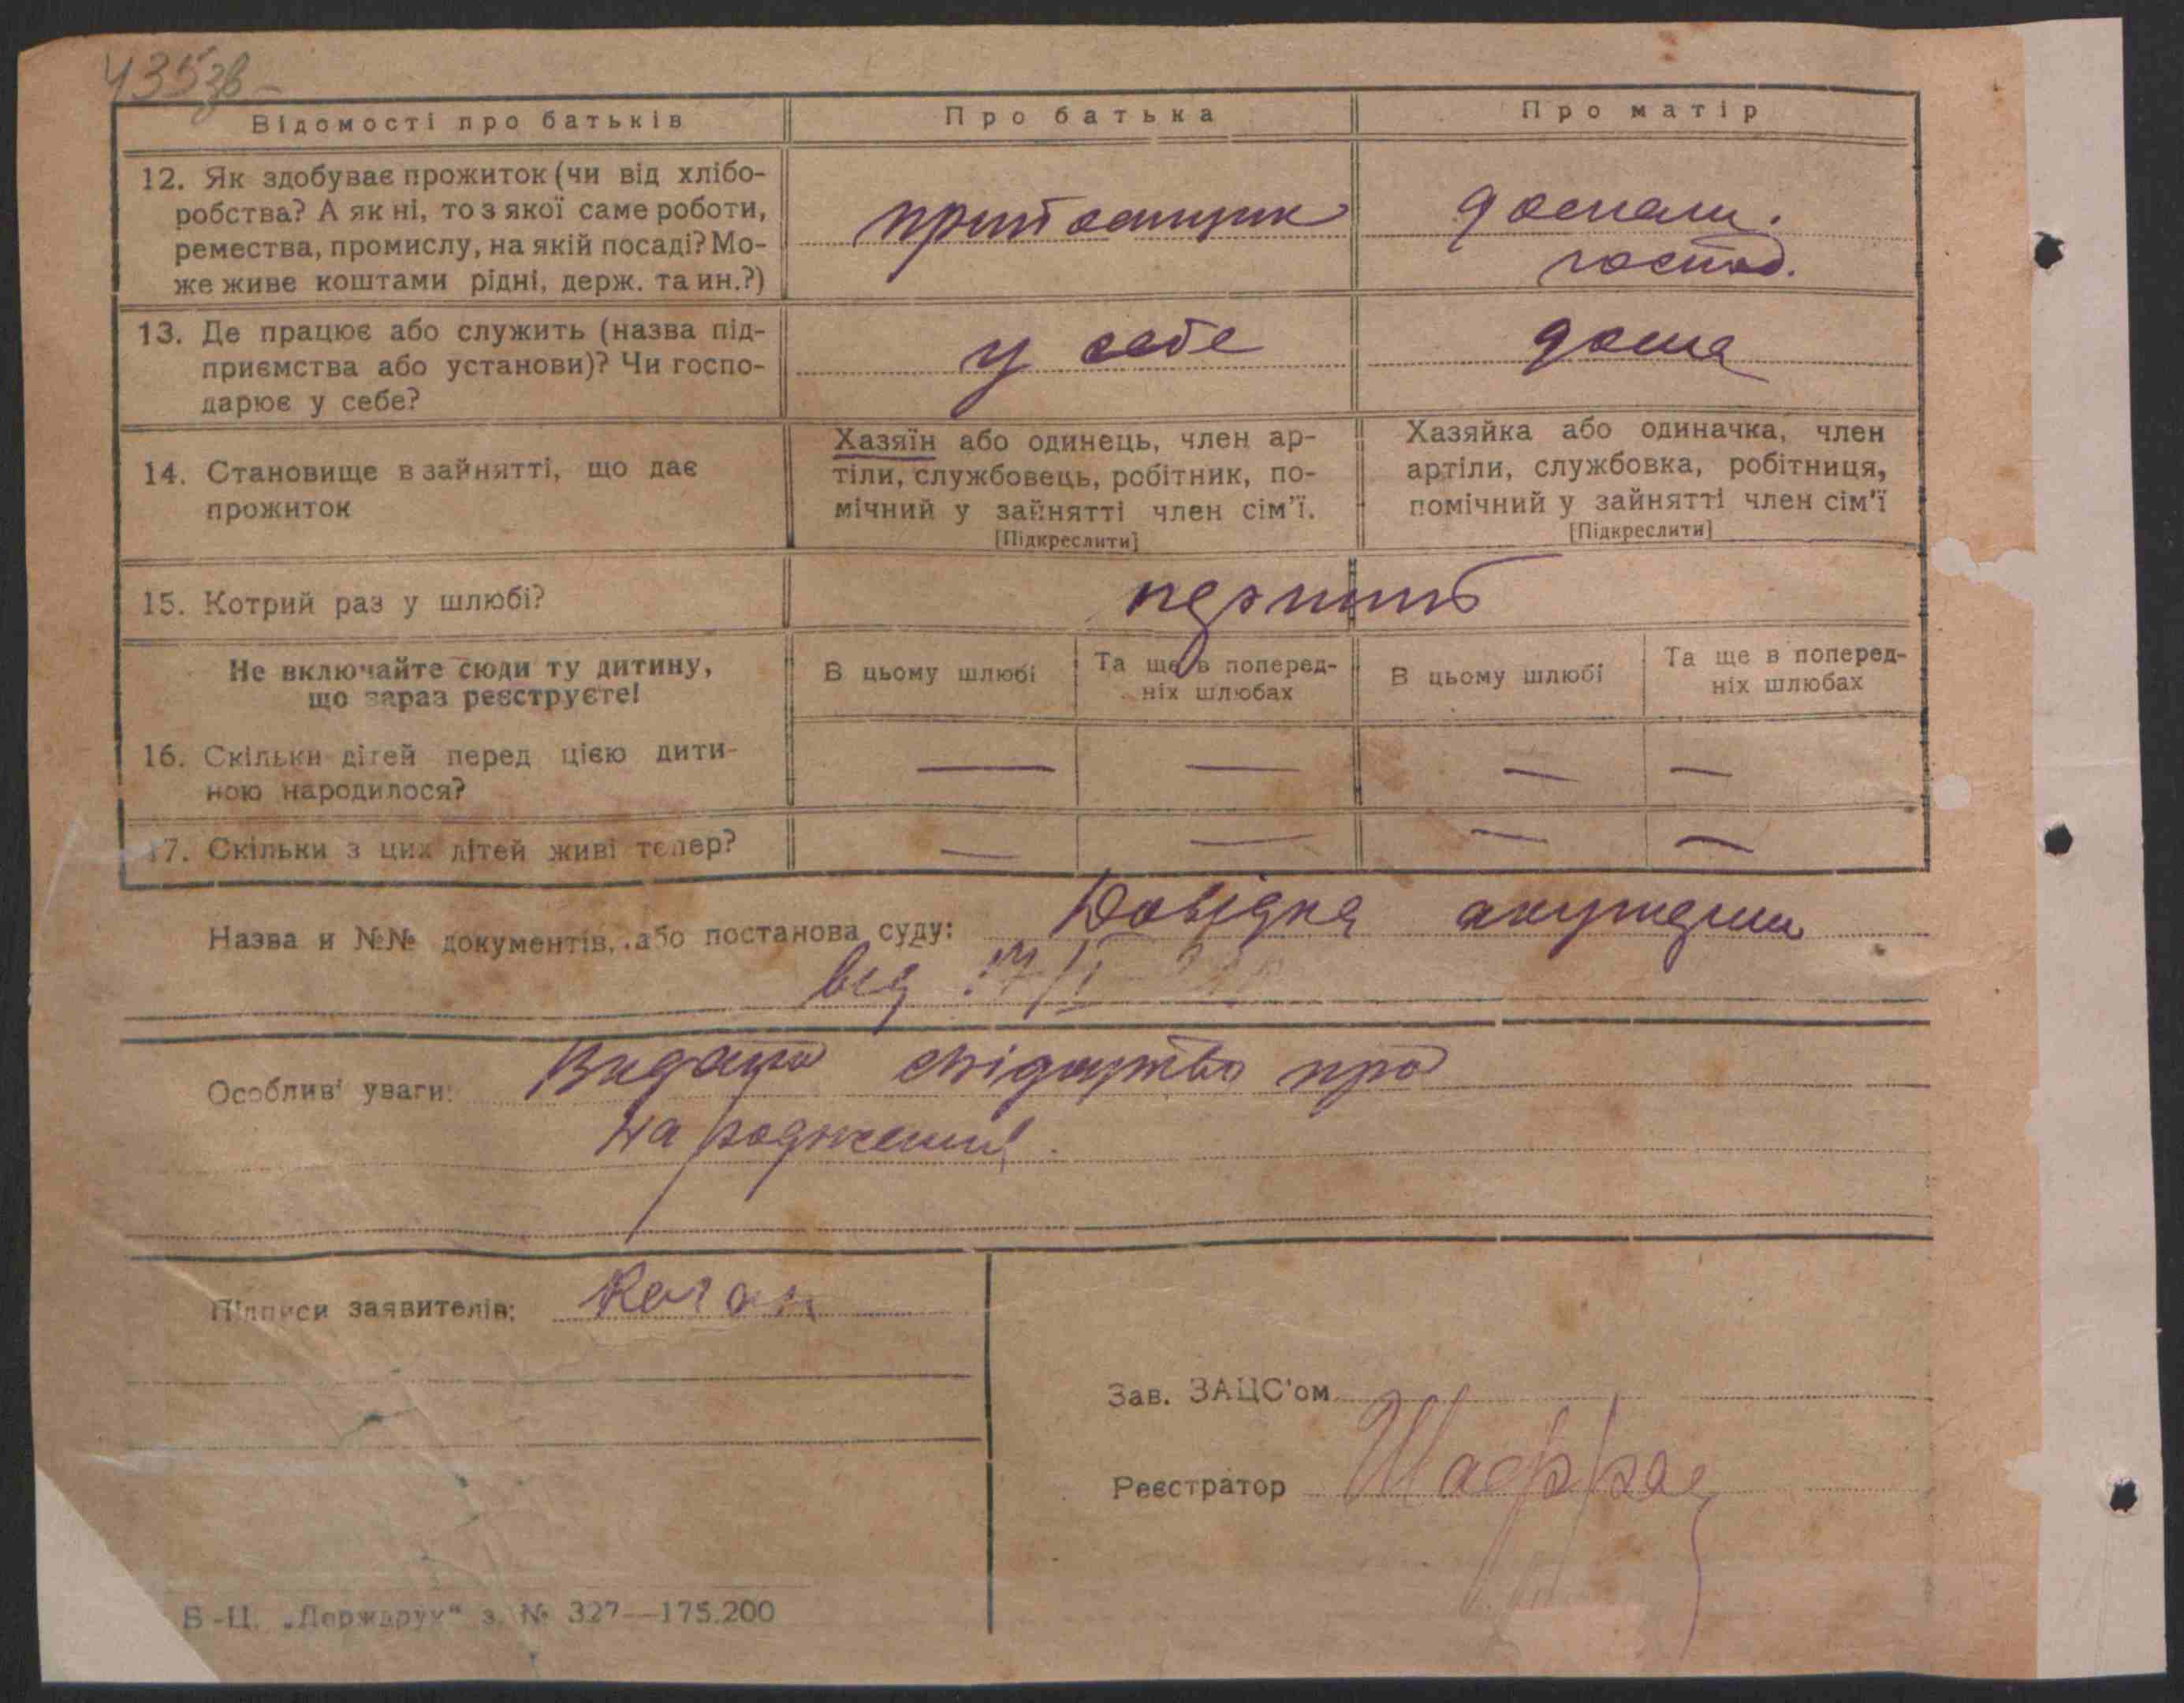 435зв
Відомості про батьків
Про батька
Про матір
12. Як здобуває прожиток (чи від хлібо-
робства? А як ні, то з якої саме роботи,
ремества, промислу, на якій посаді? Мо-
же живе коштами рідні, держ. та ин.?)
домаш.
господ.
13. Де працює або служить (назва під-
приємства або установи)? Чи госпо-
дарює у себе?
у себе
дома
14. Становище в зайнятті, що дає
прожиток
Хазяїн або одинець, член ар-
тіли, службовець, робітник, по-
мічний у зайнятті член сім'ї.
[Підкреслити]
Хазяйка або одиначка, член
артіли, службовка, робітниця,
помічний у зайнятті член сім'ї
[Підкреслити]
15. Котрий раз у шлюбі?
Не включайте сюди ту дитину,
що зараз реєструєте!
В цьому шлюбі
Та ще в поперед-
ніх шлюбах
В цьому шлюбі
Та ще в поперед-
ніх шлюбах
16. Скільки дітей перед цією дити-
ною народилося?
— — — —
17. Скільки з цих дітей живі тепер?
— — — —
Назва и №№ документів, або постанова суду: Довідка акушерки
від
Особливі уваги: Видано свідоцтво про
народження.
Підписи заявителів: Коган
Зав. ЗАЦС'ом
Реєстратор
Б.-Ц. „Держдрук“ з. № 327—175.200